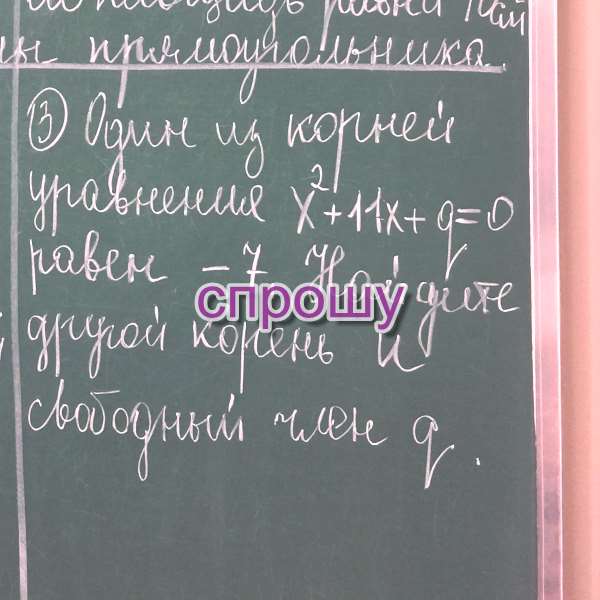 площадь равна
прямоугольника.
13 Один из корней
уравнения x²+11x+q=0
равен -7. Найдите
спрошу
другой корень и
свободный член q.